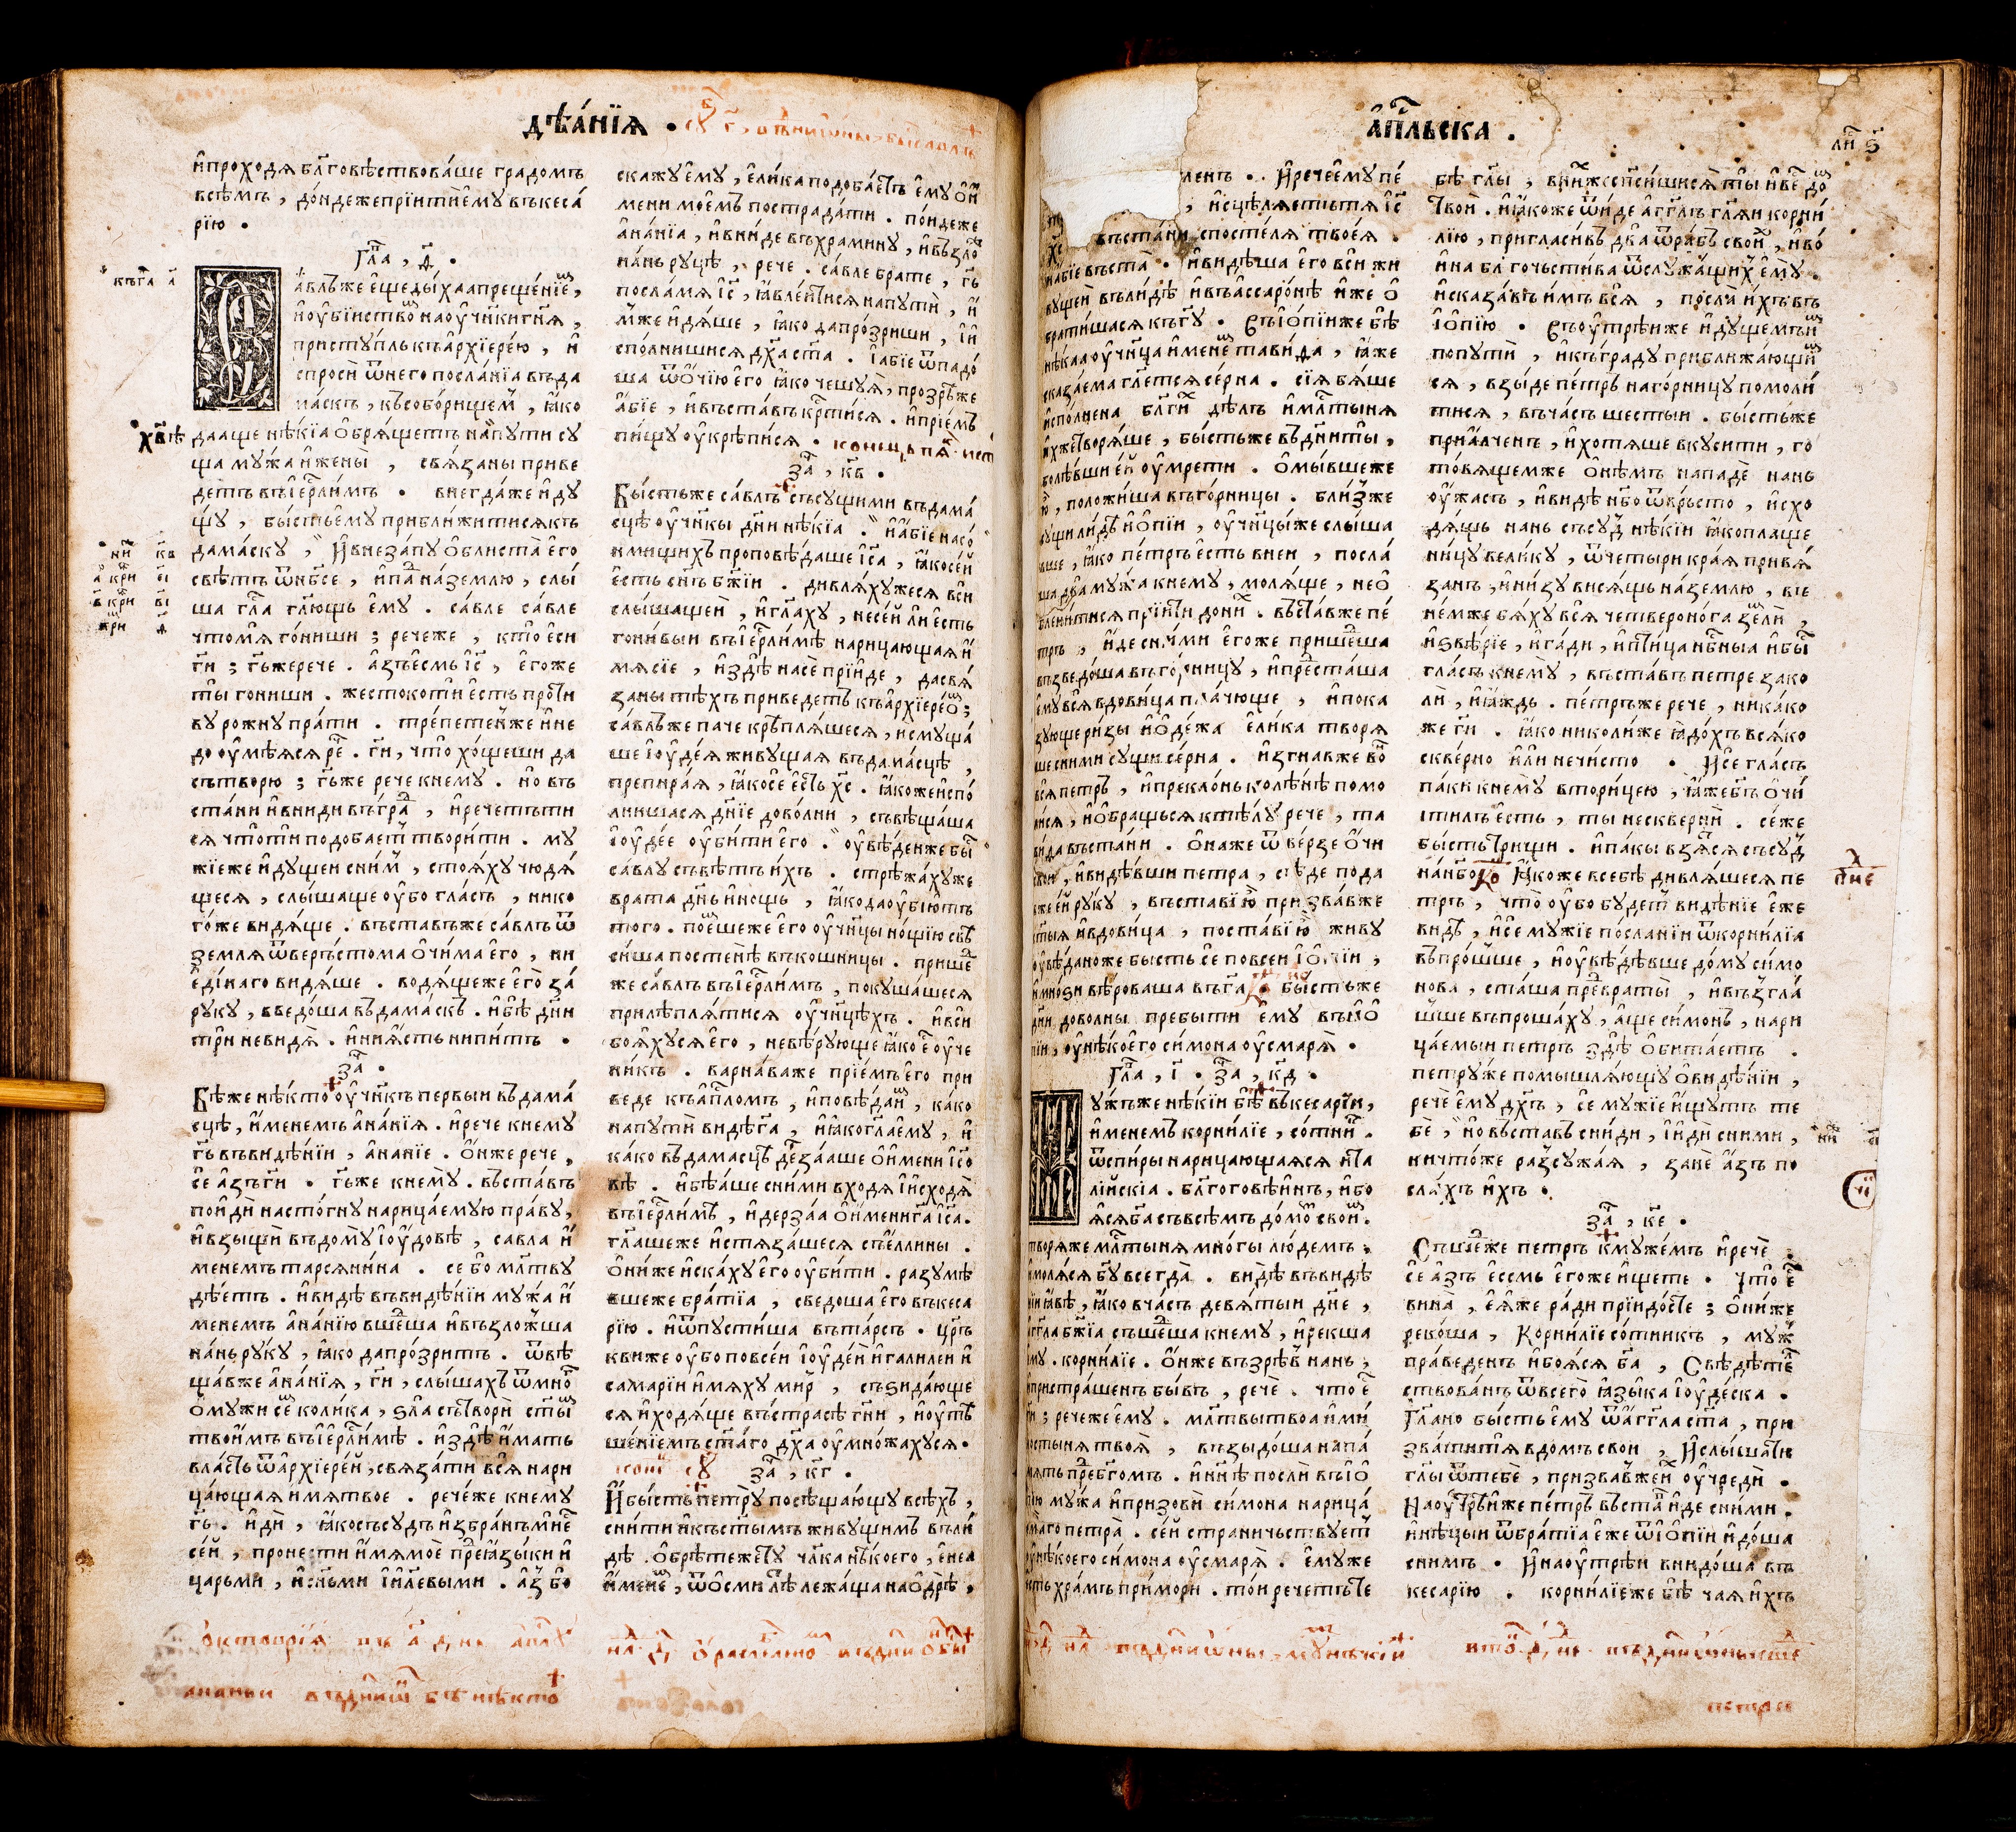 дѣа́нїѧ .
и҆проходѧ бл҃говѣствова́ше градомъ
всѣмъ , до́ндежепрїитиє҆му въкеса́
рїю .
гла҃ , ѳ҃ .
а́влъже є҆щеды́хаапреще́нїе ,
и҆оу҆бїиствѡ наоу҆чн҃кигн҃ѧ ,
присту́пль къа҆рхїере́ю , и҆
спроси̏ ѿнего посла́нїа въда
ма́скъ , късобо́рищем , ꙗ҆ко
дааще нѣкїа ѻ҆брѧ́щетъ напути су
ща му́жа и҆жены̏ , свѧ́заны приве
детъ въїе҆рл҃имъ . внегда́же и҆ду
щу , бы́стьє҆му прибли́житисѧкъ
дама́ску , И҆внеза́пу ѻ҆блиста̏ є҆го
свѣтъ ѿнб҃се , и҆па́ на́землю , слы́
ша гла҃ гл҃ющь є҆му . са́вле са́вле
чтомѧ го́ниши ; речеже , кто є҆си
гн҃и ; гь҃жерече . а҆зъє҆смь їс҃ , є҆гоже
ты гониши . жестокоти є҆сть проти
ву рожну пра́ти . тре́петенже и҆не
до оу҆мѣѧсѧ ре҃ . гн҃и , что хо́щеши да
сътворю ; гь҃же рече кнему . но въ
ста́ни и҆вниди въгра́ , и҆речетъти
сѧ чтоти подобает твори́ти . му
жїеже и҆дущеи сним , стоѧ́ху чюдѧ́
щесѧ , слы́шаще оу҆бо гла́съ , нико
го́же видѧ́ще . въставъже са́влъ ѿ
землѧ ѿве́ръстома ѻ҆чи́ма є҆го , ни
є҆ди́наго ви́дѧше . водѧ́щеже є҆го̏ за́
руку , введо́ша въдама́скъ . и҆бѣ дн҃и
три невидѧ̏ . и҆ниꙗ́сть нипи́тъ .
за҃ .
Бѣже нѣ́кто оу҆чн҃къ первыи въдама́
сцѣ , и҆́менемъ а҆на́нїѧ . и҆рече кнему
гь҃ въви́дѣнїи , а҆нанїе . ѻ҆́нже рече ,
се а҆зъ гн҃и . гь҃же кнему . въста́въ
пои҆дѝ насто́гну нарица́емую пра́ву ,
и҆взыщи̏ въдому і҆оу́довѣ , савла и҆́
менемъ тарсѧни́на . се бо мл҃тву
дѣ́етъ . и҆видѣ въви́дѣнїи му́жа и҆́
менемъ а҆на́нїю вше́ша и҆възло́жша
на́нь ру́ку , ꙗ҆ко дапро́зритъ . ѿвѣ
ща́вже а҆на́нїѧ , гн҃и , слы́шахъ ѿмно҃
ѻ҆мужи се колика , ѕла сътвори̏ сты҃
твои҆мъ въїе҆рл҃и́мѣ . и҆здѣ и҆́мать
власть ѿа҆рхїере́й , свѧза́ти всѧ нари
ца́ющаѧ и҆мѧтвое . рече́же кнему
гь҃ . и҆дѝ , ꙗ҆косъсу́дъ и҆збра́нъмне
се́й , пронести и҆мѧмое̏ пре҃ꙗ҆зы́ки и҆
царьми , и҆сн҃ьми і҆и҃левыми . а҆з бо
скажу є҆му , є҆ли́ка подоба́етъ є҆му ѻ҆и҆
мени моє҆мъ пострада́ти . пои́деже
а҆на́нїа , и҆вни́де въхра́мину , и҆възло
на́нь руцѣ , рече . са́вле брате , гь҃
посла́мѧ їс҃ , ꙗ҆вле́итисѧ напути̏ , и҆́
мже и҆дѧ́ше , ꙗ҆ко дапро́зриши , і҆и
спо́лнишисѧ дх҃а ст҃а . і҆абїе ѿпадо́
ша ѿѻ҆́чїю є҆го ꙗ҆ко чешуѧ̏ , прозрѣ́же
а҆бїе , и҆въста́въ кр҃ти́сѧ . и҆прїе́мъ
пи́щу оу҆крѣпи́сѧ .
за҃ , кв҃ .
Бы́стьже са́влъ съсу́щими въдама́
сцѣ оу҆чн҃кы дн҃и нѣкїа . и҆а҆́бїе насо́
нмищихъ проповѣ́даше їс҃а , ꙗ҆косе́й
є҆сть сн҃ъ бж҃їи . дивлѧ́хужесѧ вси
слы́шащеи̏ , и҆гл҃аху , несе́й ли є҆сть
гони́выи въїе҆рл҃и́мѣ нарицающаѧ и҆́
мѧсїе , и҆здѣ насе̏ прїи́де , дасвѧ́
заны тѣхъ приведетъ къа҆рхїере́ѡ ;
са́влъже паче крѣплѧ́шесѧ , исмуща́
ше і҆оу҆де́ѧ живу́щаѧ въдама́сцѣ ,
препира́ѧ , ꙗ҆косе̏ є҆сть хс҃ . ꙗ҆коженспо́
лнишасѧ дн҃їе дово́лни , съвѣща́ша
і҆оу҆де́е оу҆би́ти є҆го . оу҆вѣ́денже бы҃
са́влу съвѣтъ и҆́хъ . стрѣжа́хуже
врата дн҃ь и҆но́щь , ꙗ҆кодаоу҆бїю́тъ
того . пое́шеже є҆го оу҆чн҃цы но́щїю свѣ
си́ша постенѣ̏ въкошни́цы . прише́
же са́влъ въїе҆рл҃имъ , покуша́шесѧ
прилѣплѧ́тисѧ оу҆чн҃цѣхъ . и҆вси
боѧ́хусѧ є҆го , невѣ́рующе ꙗ҆ко е҆ оу҆че
ни́къ . варна́важе прїе́мъ є҆го при
веде къа҆пл҃омъ , и҆повѣ́даи , ка́ко
напути̏ ви́дѣ г҃а , и҆ꙗ҆когл҃а є҆му , и҆
ка́ко въдамасцѣ де́рзааше ѻ҆и҆мени їс҃о
вѣ . и҆бѣа́ше сни́ми входѧ і҆исходѧ̏
въїе҆рл҃имъ , и҆дерза́а ѻ҆и҆́мениг҃а їс҃а .
гл҃ашеже и҆стѧза́шесѧ съе҆ллины .
ѻ҆ниже и҆ска́ху є҆го оу҆би́ти . разумѣ
вшеже бра́тїа , сведо́ша є҆го въкеса
рїю . и҆ѿпусти́ша въта́рсъ . цр҃къ
виже оу҆бо повсе́и і҆оу҆де́и и҆галиле́и и҆
самарїи и҆мѧху ми́р , съзида́юще
сѧ и҆ходѧ́ще въстра́сѣ гн҃и , и҆оу҆тѣ
ше́нїемъ ст҃а́го дх҃а оу҆мно́жахусѧ .
за҃ , кг҃ .
И҆бы́сть петру посѣща́ющу всѣхъ ,
сни́ти и҆къст҃ымъ живу́щимъ въли́
дѣ . ѻ҆брѣтежету чл҃ка нѣкоего , є҆неа
и҆мене , ѿѻ҆сми лѣ лежа́ща наѻ҆дрѣ ,
а҆пл҃ьска .
ли҃ ѕ҃
ленъ . И҆речеє҆му пе́
, и҆сцѣлѧ́етъ тѧ їс҃
хс҃ въста́ни спосте́лѧ твоеѧ́ .
и҆а҆́бїе въста̏ . и҆ви́дѣша є҆го вси жи
вущеи̏ въли́дѣ и҆въа҆ссаро́нѣ и҆же ѻ҆
брати́шасѧ къгу҃ . Съіѻ҆пїиже бѣ
нѣ́каа оу҆чн҃ца и҆менѐ тави́да , ꙗ҆́же
сказа́ема гл҃етсѧ се́рна . сїѧ бѧ́ше
и҆спо́лнена бл҃ги́ дѣлъ и҆мл҃тынѧ
и҆хжетворѧ́ше , бы́стьже въдн҃иты́ ,
болѣ́вши е́й оу҆мрети . ѻ҆мы́вшеже
ю҆ , положи́ша въго́рницы . бли́зже
сущи ли́дѣ и҆іѻ҆пїи , оу҆чн҃цы́же слы́ша
вше , ꙗ҆ко пе́тръ є҆сть внеи , посла́
ша два му́жа кнему , молѧ́ще , неѻ҆
блени́тисѧ прїити дони́ . въста́вже пе́
тръ , и҆́де сни́ми є҆гоже прише́ша
възведо́ша въго́рницу , и҆пре́сташа
є҆му всѧ вдови́ца пла́чюще , и҆пока
зующе ри́зы и҆ѻ҆де́жа є҆ли́ка творѧ
ше сними су́щи се́рна . и҆згна́вже во҃
всѧ петръ , и҆прекло́нь колѣнѣ помо
лисѧ , и҆ѻ҆бра́щьсѧ ктѣ́лу рече , та
ви́да въста́ни . ѻ҆наже ѿве́рзе ѻ҆́чи
свои , и҆ви́дѣвши петра , сѣде пода
вже е́й ру́ку , въста́ви ю҆ призва́вже
ст҃ыѧ и҆вдови́ца , поста́ви ю҆ живу
оу҆вѣ́даноже бысть се повсеи і҆ѻ҆пїи ,
и҆мно́ѕи вѣ́роваша въг҃а бы́стьже
дн҃и дово́лны пребы́ти є҆му въіѻ҆
пїи , оу҆нѣ́коего си́мона оу҆смарѧ̏ .
гла҃ , і҃ . за҃ , кд҃ .
у́жьже нѣ́кїи бѣ въкесарїи ,
и҆́менемъ корни́лїе , со́тни .
ѿспи́ры нарица́ющаѧсѧ и҆та
лїйскїа . бл҃гоговѣ́инъ , и҆бо
ѧ́сѧ б҃а съвсѣмъ до́мѡ свои .
творѧ́же мл҃тынѧ мно́гы лю́демъ .
и҆молѧ́сѧ бг҃у всегда̏ . ви́дѣ въви́дѣ
нїи ꙗ҆́вѣ , ꙗ҆ко вча́съ девѧ́тыи дне ,
а҆гг҃ла бж҃їа съше́ша кнему , и҆рекша
є҆му . корни́лїе . ѻ҆́нже възрѣ́в нань ,
и҆пристра́шенъ бы́въ , рече̏ . что е҃
гн҃и ; речеже є҆му . мл҃твытвоа и҆ми́
лостынѧ твоѧ̏ , възыдо́ша напа́
мѧть пре́б҃гомъ . и҆нн҃ѣ посли̏ въіѻ҆
пїю му́жа и҆призови̏ си́мона нарица́
емаго петра̏ . се́й страннїчьствует
оу҆нѣ́коего си́мона оу҆смарѧ̏ . є҆муже
є҆сть хра́мъ при́мори . то́и речетъте
бѣ гл҃ы , вни́жеспсе́шисѧ ты и҆ве́ до́
твои̏ . и҆ꙗ҆коже ѿи́де а҆гг҃лъ гл҃ѧи корни́
лїю , пригласи́въ два ѿрабъ свои , и҆во́
ина бл҃гочьсти́ва ѿслужа́щих є҆му .
и҆сказа́въ и҆мъ всѧ , посла̏ и҆́хъ въ
іѻ҆пїю . Съоу҆трѣ́иже и҆ду́щемъи
попути̏ , и҆къгра́ду приближа́ющи
сѧ , взы́де пе́тръ наго́рницу помоли́
тисѧ , въча́съ шесты́и . бы́стьже
приа҆́лченъ , и҆хотѧ́ше вкуси́ти , го
то́вѧщемже ѻ҆нѣ́мъ нападѐ нань
оу҆́жасъ , и҆ви́дѣ нб҃о ѿве́рьсто , и҆схо
дѧ́щь нань съсу́д нѣ́кїи ꙗ҆коплаще
ни́цу вели́ку , ѿче́тыри кра́ѧ привѧ́
занъ , и҆ни́зу вися́щь на́землю , вне
не́мже бѧ́ху всѧ четвероно́га зе́ли ,
и҆ѕвѣ́рїе , и҆га́ди , и҆пти́ца нб҃ныа и҆бы҃
гла́съ кнему̏ , въста́въ петре зако
лѝ , и҆ꙗ҆́ждь . пе́тръже рече , ника́ко
же гн҃и . ꙗ҆ко николи́же ꙗ҆до́хъ всѧ́ко
скве́рно и҆ли нечи́сто . И҆се гла́съ
па́ки кнему̏ втори́цею , ꙗ҆́жебг҃ъ ѻ҆чи́
стилъ є҆сть , ты нескверни̏ . се́же
бы́сть три́щи . и҆па́кы взѧ́сѧ съсу́д
нанб҃о Ꙗ҆коже всебѣ̏ дивлѧ́шесѧ пе
тръ , что̏ оу҆бо бу́дет виде́нїе є҆же
видѣ , и҆се му́жїе по́сланїи ѿкорни́лїа
въпро́шше , и҆оу҆вѣ́дѣвше до́му си́мо
нова , ста́ша предвраты̏ , и҆възгла́
шше въпроша́ху , а҆́ще си́монъ , нари
ца́емыи петръ здѣ ѻ҆бита́етъ .
петру́же помышлѧ́ющу ѻ҆виде́нїи ,
рече̏ є҆му дх҃ъ , се му́жїе и҆́щутъ те
бѐ , но въста́въ сни́ди , і҆и́ди сни́ми ,
ничто́же разсужа́ѧ , занѐ а҆́зъ по
сла́хъ и҆́хъ .
за҃ , ке҃ .
Сше́же петръ кмуже́мъ и҆рече̏ .
се а҆́зъ є҆смь є҆гоже и҆́щете . что е҃
вина̏ , є҆ѧже ра́ди прїидо́сте ; ѻ҆ни́же
реко́ша , Корни́лїе со́тникъ , му́ж
пра́веденъ и҆боѧ́сѧ б҃а , Свѣ́дѣте
ствова́нъ ѿвсего̏ ꙗ҆зы́ка і҆оу҆де́ска .
Гл҃ано бы́сть є҆му ѿа҆́гг҃ла ст҃а , при
зва́титѧ вдо́мъ свои , И҆слы́шати
гл҃ы ѿтебѐ , призва́вжеи́ оу҆чредѝ .
Наоу҆́трѣиже пе́тръ въста́ и҆де сни́ми .
и҆нѣ́цыи ѿбра́тїа є҆́же ѿіѻ҆пїи и҆до́ша
снимъ . И҆наоу҆́трѣи внидо́ша въ
кесарі́ю . корни́лїеже бѣ ча́ѧ и҆́хъ